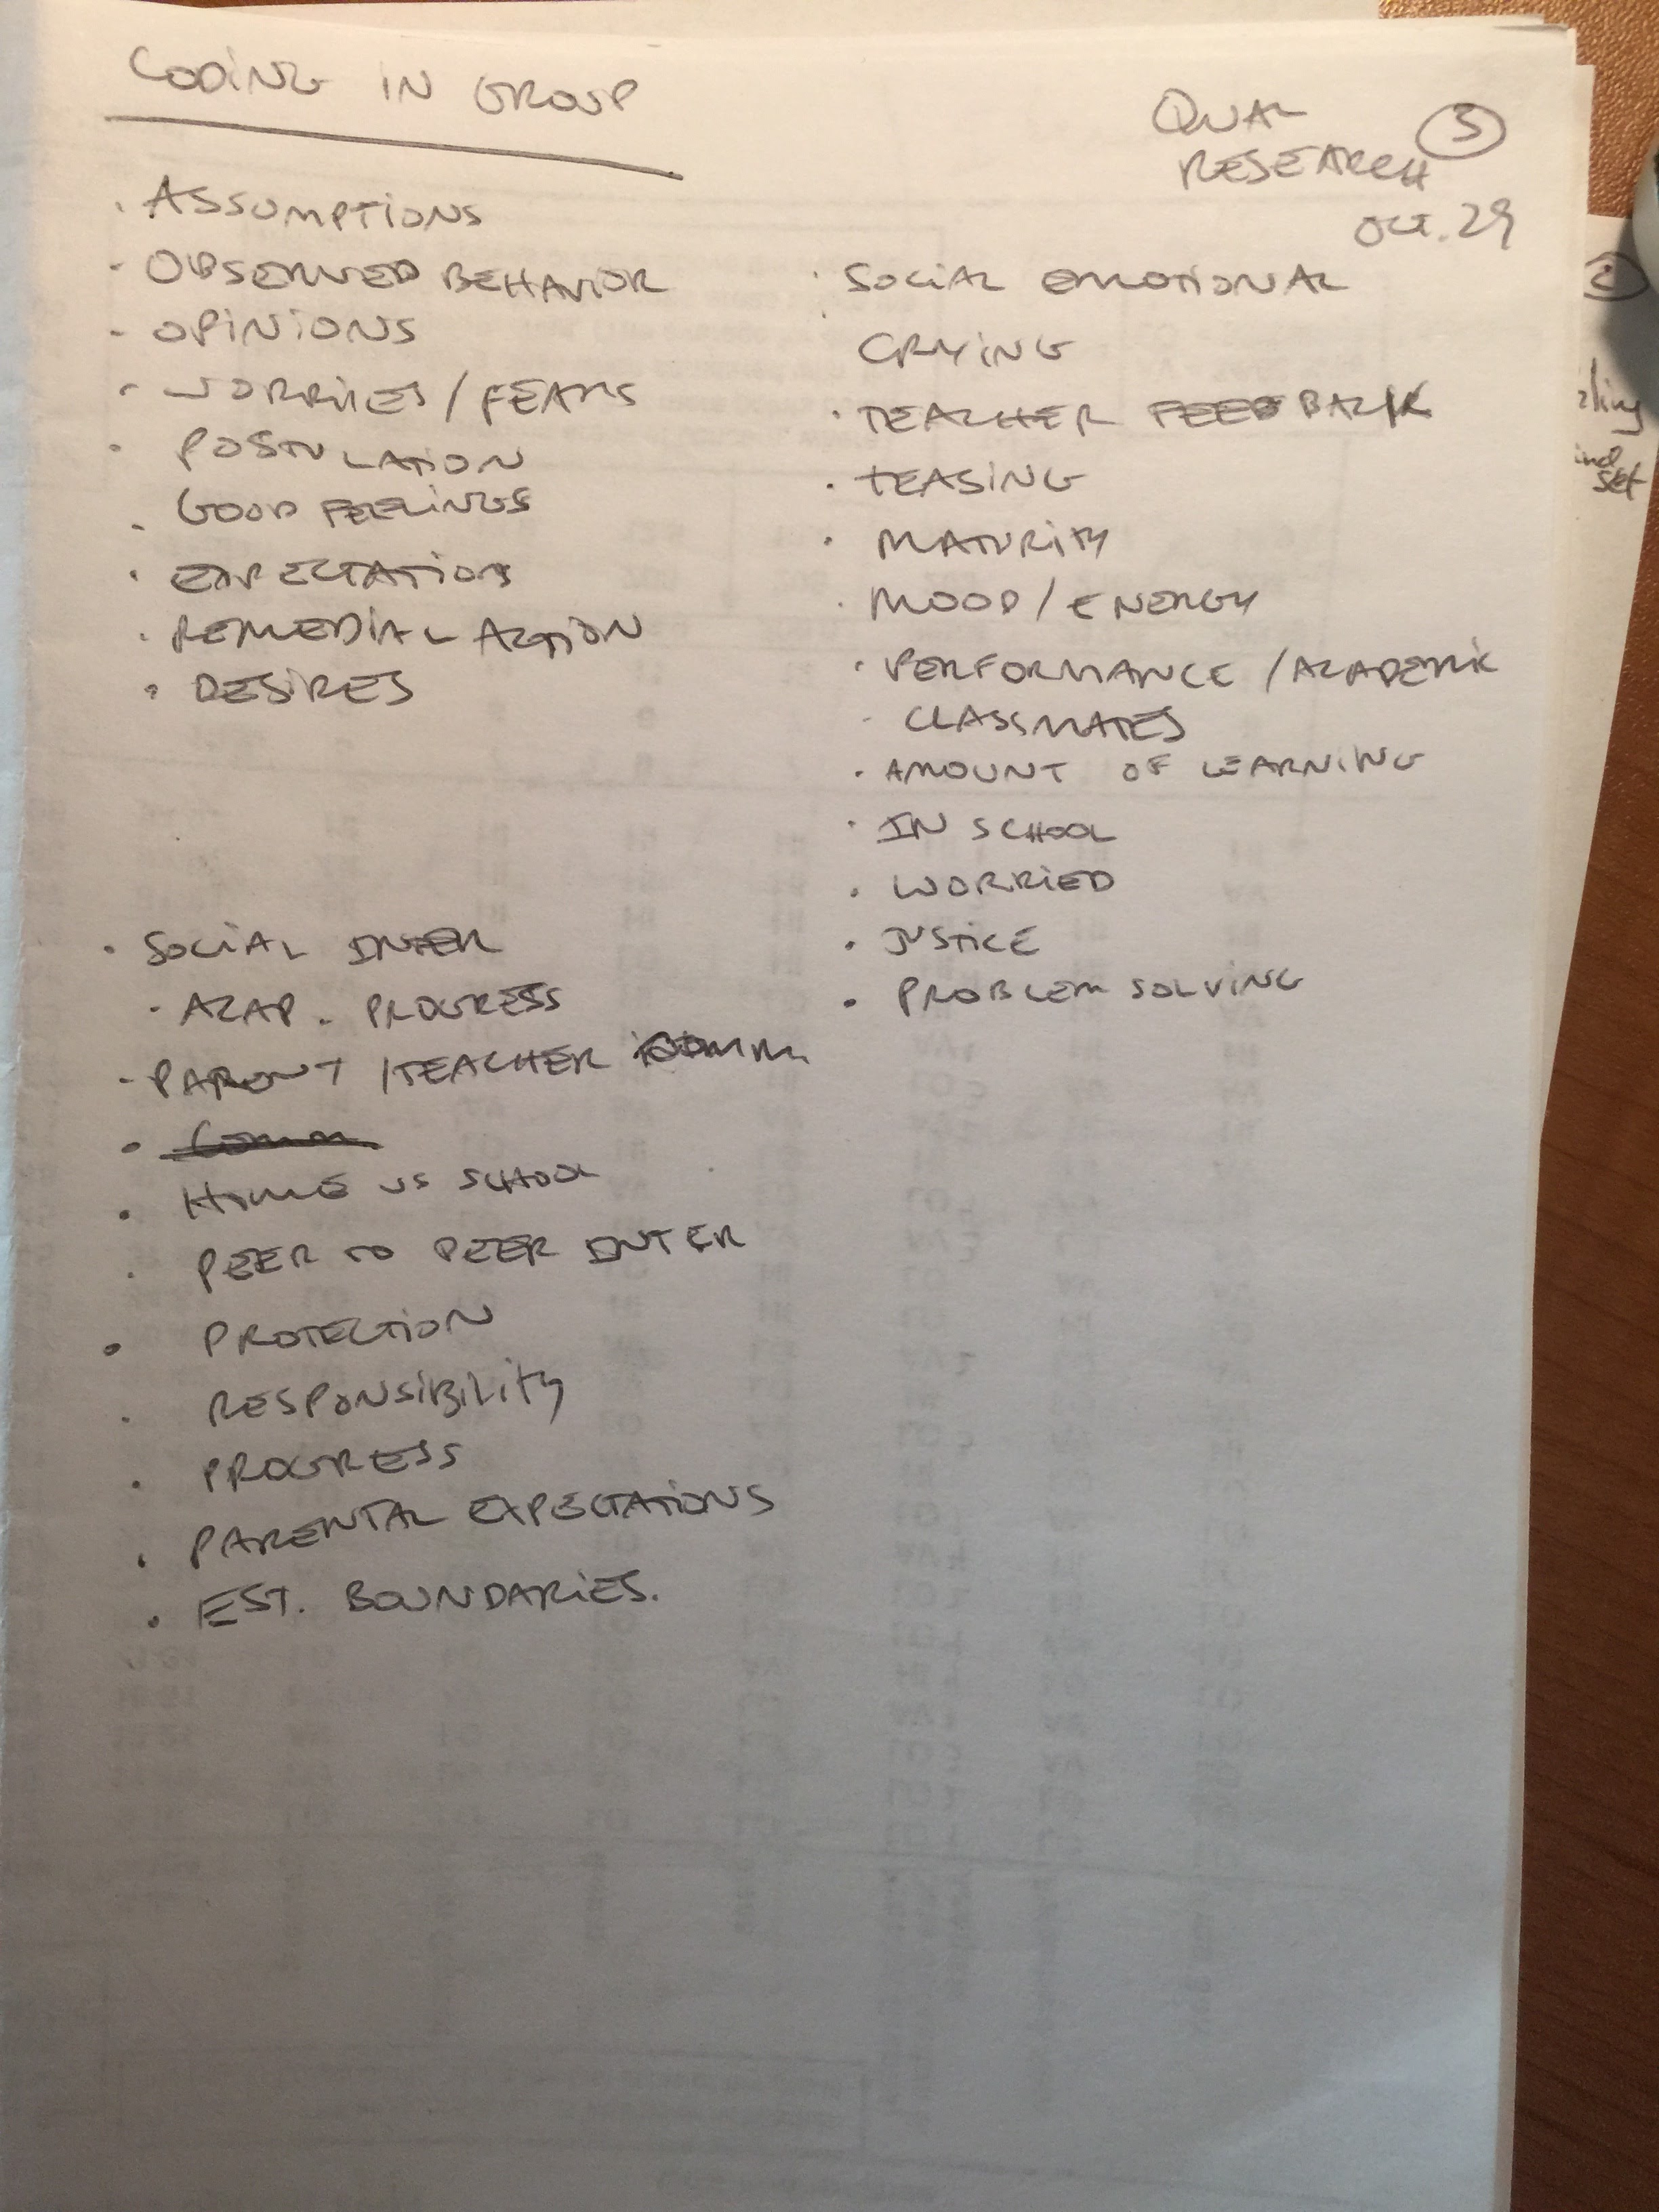 CODING IN GROUP
QUAL
RESEARCH
3
OCT. 29
· ASSUMPTIONS
- OBSERVED BEHAVIOR
- OPINIONS
- WORRIES / FEARS
· POSTULATION
· GOOD FEELINGS
· EXPECTATIONS
· REMEDIAL ACTION
· DESIRES
· SOCIAL EMOTIONAL
CRYING
· TEACHER FEEDBACK
· TEASING
· MATURITY
· MOOD / ENERGY
· PERFORMANCE / ACADEMIC
- CLASSMATES
· AMOUNT OF LEARNING
· IN SCHOOL
· WORRIED
· JUSTICE
· PROBLEM SOLVING
· SOCIAL INTER
· ACAD. PROGRESS
- PARENT / TEACHER COMM.
· Comm
· HOME VS SCHOOL
· PEER TO PEER INTER
· PROTECTION
· RESPONSIBILITY
· PROGRESS
· PARENTAL EXPECTATIONS
· EST. BOUNDARIES.
2
set